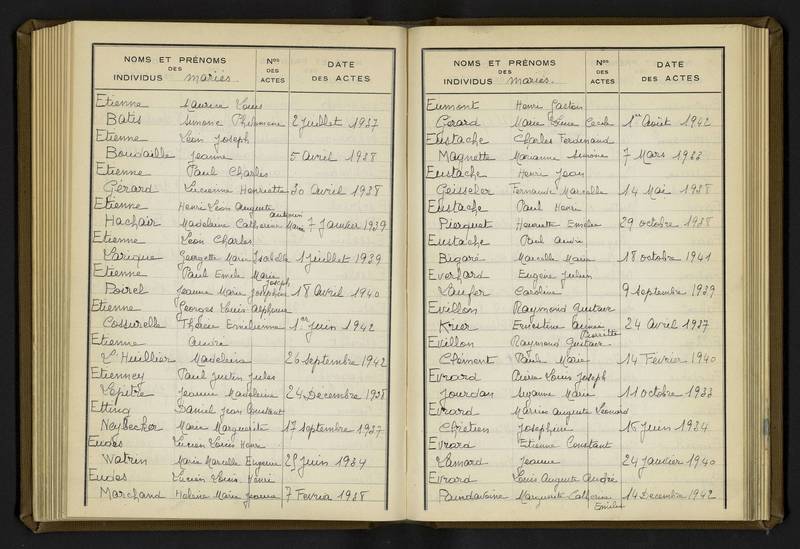 NOMS ET PRÉNOMS
DES
INDIVIDUS mariés.
Nos
DES
ACTES
DATE
DES ACTES
Etienne Maurice Louis
Batis Simone Philomène 2 juillet 1937
Etienne Léon Joseph
Boudaille Jeanne 5 Avril 1938
Etienne Paul Charles
Gérard Lucienne Henriette 30 Avril 1938
Etienne Henri Léon Auguste
Hachair Madeleine Catherine Marie 7 Janvier 1939
Etienne Léon Charles
Larique Georgette Marie Isabelle 1 juillet 1939
Etienne Paul Emile Marie Joseph
Poirel Jeanne Marie Joséphine 18 Avril 1940
Etienne Georges Louis Alphonse
Cossurelle Thérèse Emilienne 1er Juin 1942
Etienne André
L'Huillier Madeleine 26 septembre 1942
Etienney Paul Justin Jules
Lepitre Jeanne Madeleine 24 Décembre 1938
Etting Daniel Jean Constant
Neybecker Marie Marguerite 17 septembre 1937
Eudes Lucien Louis Henri
Watrin Marie Marcelle Eugénie Juin 1934
Eudes Lucien Louis Henri
Marchand Hélène Marie Jeanne 7 Fevrier 1938
NOMS ET PRÉNOMS
DES
INDIVIDUS mariés.
Nos
DES
ACTES
DATE
DES ACTES
Eumont Henri Gaston
Gérard Marie Line Cécile 1er Août 1942
Eustache Charles Ferdinand
Magnette Marianne Simone 7 Mars 1933
Eustache Henri Jean
Geisseler Fernande Marcelle 14 Mai 1938
Eustache Paul Henri
Pierquet Henriette Emilie 29 octobre 1938
Eustache Paul André
Bigaré Marcelle Marie 18 octobre 1941
Everhard Eugène Julien
Laufer Caroline 9 septembre 1939
Evillon Raymond Gustave
Krier Ernestine Pierrette 24 Avril 1937
Evillon Raymond Gustave
Clément Paule Marie 14 Février 1940
Evrard Pierre Louis Joseph
Jourdan Suzanne Marie 11 octobre 1933
Evrard Marius Auguste Léonard
Chrétien Joséphine 16 Juin 1934
Evrard Etienne Constant
Lamard Jeanne 24 Janvier 1940
Evrard Louis Auguste André
Paindavoine Marguerite Catherine Emilie 14 Décembre 1942